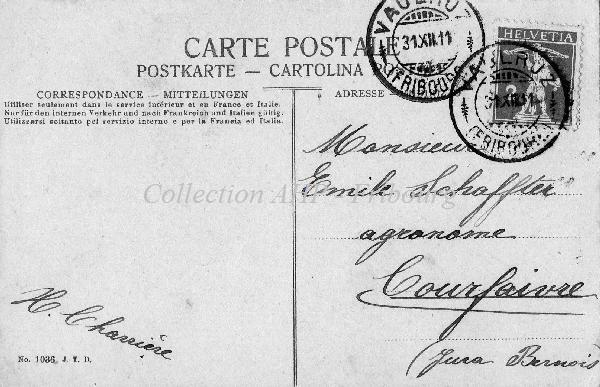 CARTE POSTALE
POSTKARTE — CARTOLINA
CORRESPONDANCE - MITTEILUNGEN
Utiliser seulement dans le service intérieur et en France et Italie.
Nur für den internen Verkehr und nach Frankreich und Italien gültig.
Utilizzarsi soltanto pel servizio interno e per la Francia ed Italia.
ADRESSE -
VAULRUZ
31.XII.11
(FRIBOURG)
HELVETIA
2
VAULRUZ
31.XII.11
(FRIBOURG)
Monsieur
Emile Schaffter
agronome
Courfaivre
(Jura Bernois
H. Charrière
No. 1036. J. T. D.
Collection - Fribourg